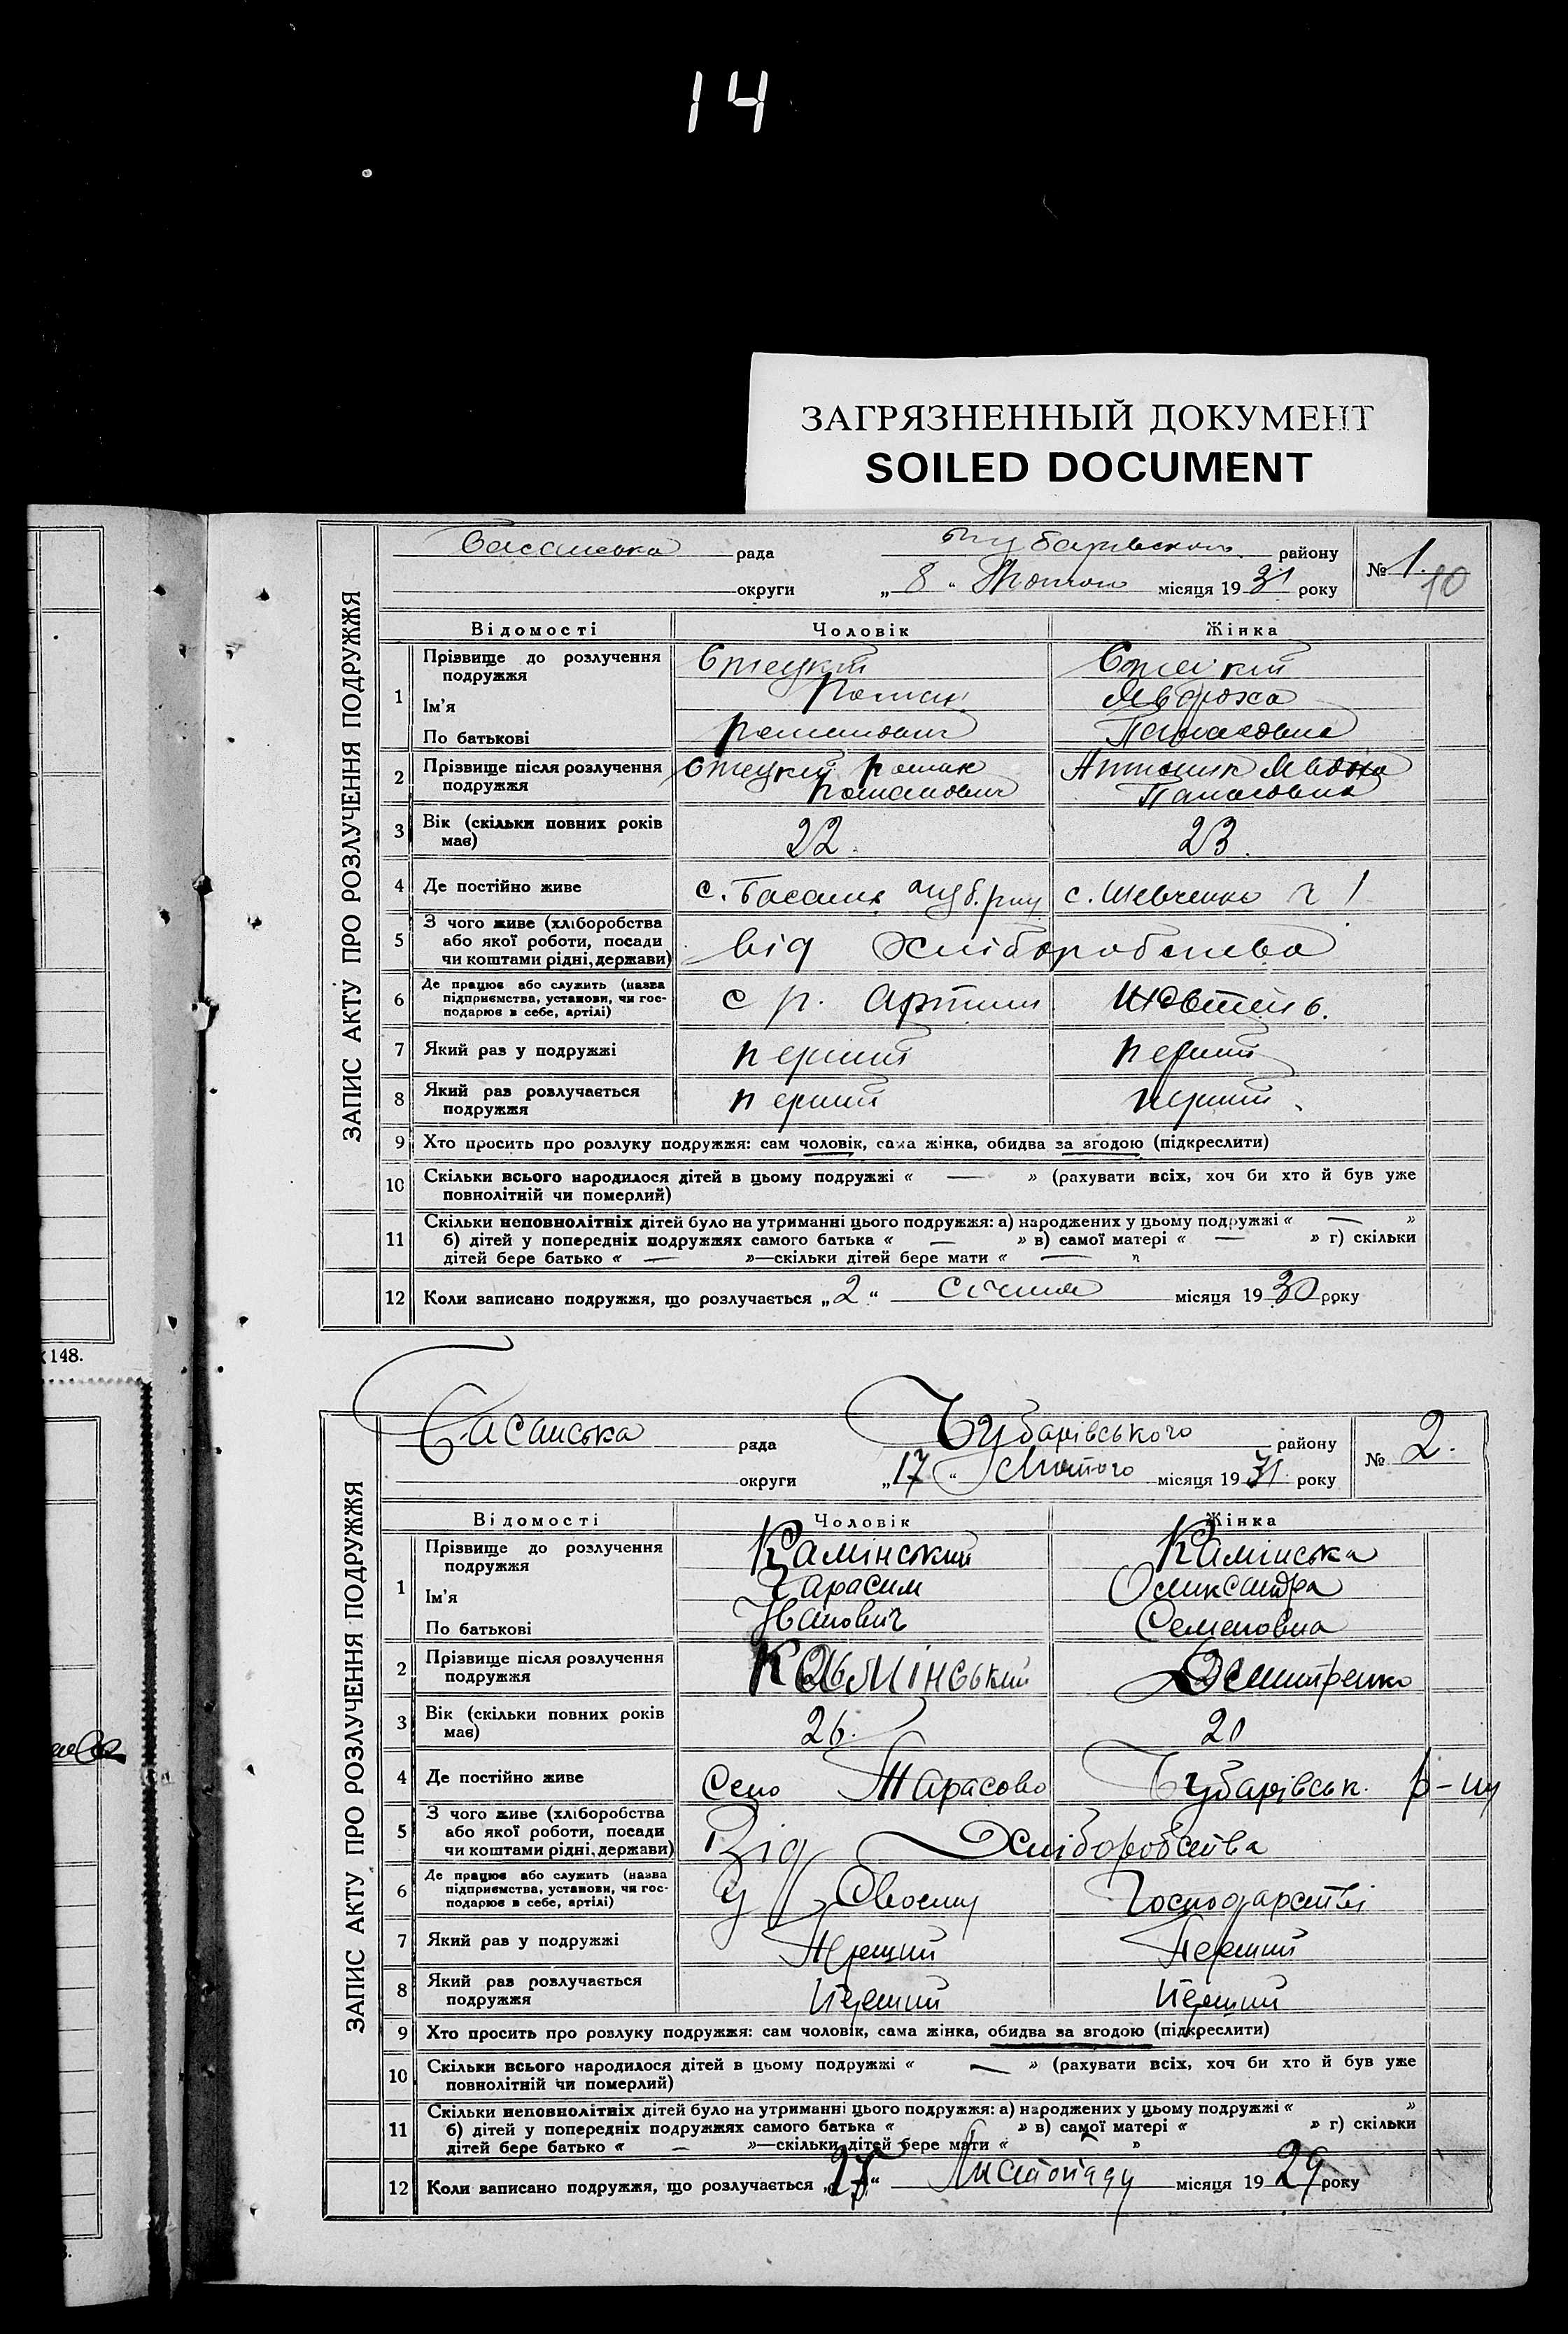 14
ЗАГРЯЗНЕННЫЙ ДОКУМЕНТ
SOILED DOCUMENT
148.
ЗАПИС АКТУ ПРО РОЗЛУЧЕННЯ ПОДРУЖЖЯ
Басанська рада Чубарівського району № 1. 10
округи „ 8 “ Лютого місяця 1931 року
Відомості Чоловік Жінка
1 Прізвище до розлучення подружжя
Ім’я Роман Явдоха
По батькові Романович Панасовна
2 Прізвище після розлучення подружжя Роман Романович Антонюк Явдоха Панасовна
3 Вік (скільки повних років має) 22. 23.
4 Де постійно живе с. Басань Чуб. р-ну с. Шевченко № 1
5 З чого живе (хліборобства або якої роботи, посади чи коштами рідні, держави) Від Хліборобства
6 Де працює або служить (назва підприємства, установи, чи господарює в себе, артілі) с р. Артіли Жовтень.
7 Який раз у подружжі перший перший
8 Який раз розлучається подружжя перший перший.
9 Хто просить про розлуку подружжя: сам чоловік, сама жінка, обидва за згодою (підкреслити)
10 Скільки всього народилося дітей в цьому подружжі « — » (рахувати всіх, хоч би хто й був уже
повнолітній чи померлий)
11 Скільки неповнолітніх дітей було на утриманні цього подружжя: а) народжених у цьому подружжі « — »
б) дітей у попередніх подружжях самого батька « — » в) самої матері « — » г) скільки
дітей бере батько « — »—скільки дітей бере мати « — »
12 Коли записано подружжя, що розлучається „2“ Січня місяця 1930 року
ЗАПИС АКТУ ПРО РОЗЛУЧЕННЯ ПОДРУЖЖЯ
Басанська рада Чубарівського району № 2.
округи „17“ Лютого місяця 1931 року
Відомості Чоловік Жінка
1 Прізвище до розлучення подружжя Камінський Камінська
Ім’я Гарасим Олександра
По батькові Іванович Семеновна
2 Прізвище після розлучення подружжя Камінський Дмитренко
3 Вік (скільки повних років має) 26. 20
4 Де постійно живе Село Тарасово Чубарівськ. р-ну
5 З чого живе (хліборобства або якої роботи, посади чи коштами рідні, держави) Від Хліборобства
6 Де працює або служить (назва підприємства, установи, чи господарює в себе, артілі) У Своєму Господарстві
7 Який раз у подружжі Перший Перший
8 Який раз розлучається подружжя Перший Перший
9 Хто просить про розлуку подружжя: сам чоловік, сама жінка, обидва за згодою (підкреслити)
10 Скільки всього народилося дітей в цьому подружжі « — » (рахувати всіх, хоч би хто й був уже
повнолітній чи померлий)
11 Скільки неповнолітніх дітей було на утриманні цього подружжя: а) народжених у цьому подружжі « »
б) дітей у попередніх подружжях самого батька « » в) самої матері « » г) скільки
дітей бере батько « — »—скільки дітей бере мати « »
12 Коли записано подружжя, що розлучається Листопаду місяця 1929 року